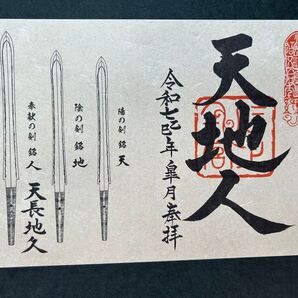 天地人
令和七乙巳年皐月奉拝
陽の剣 銘 天
陰の剣 銘 地
奉献の剣 銘 人
天長地久